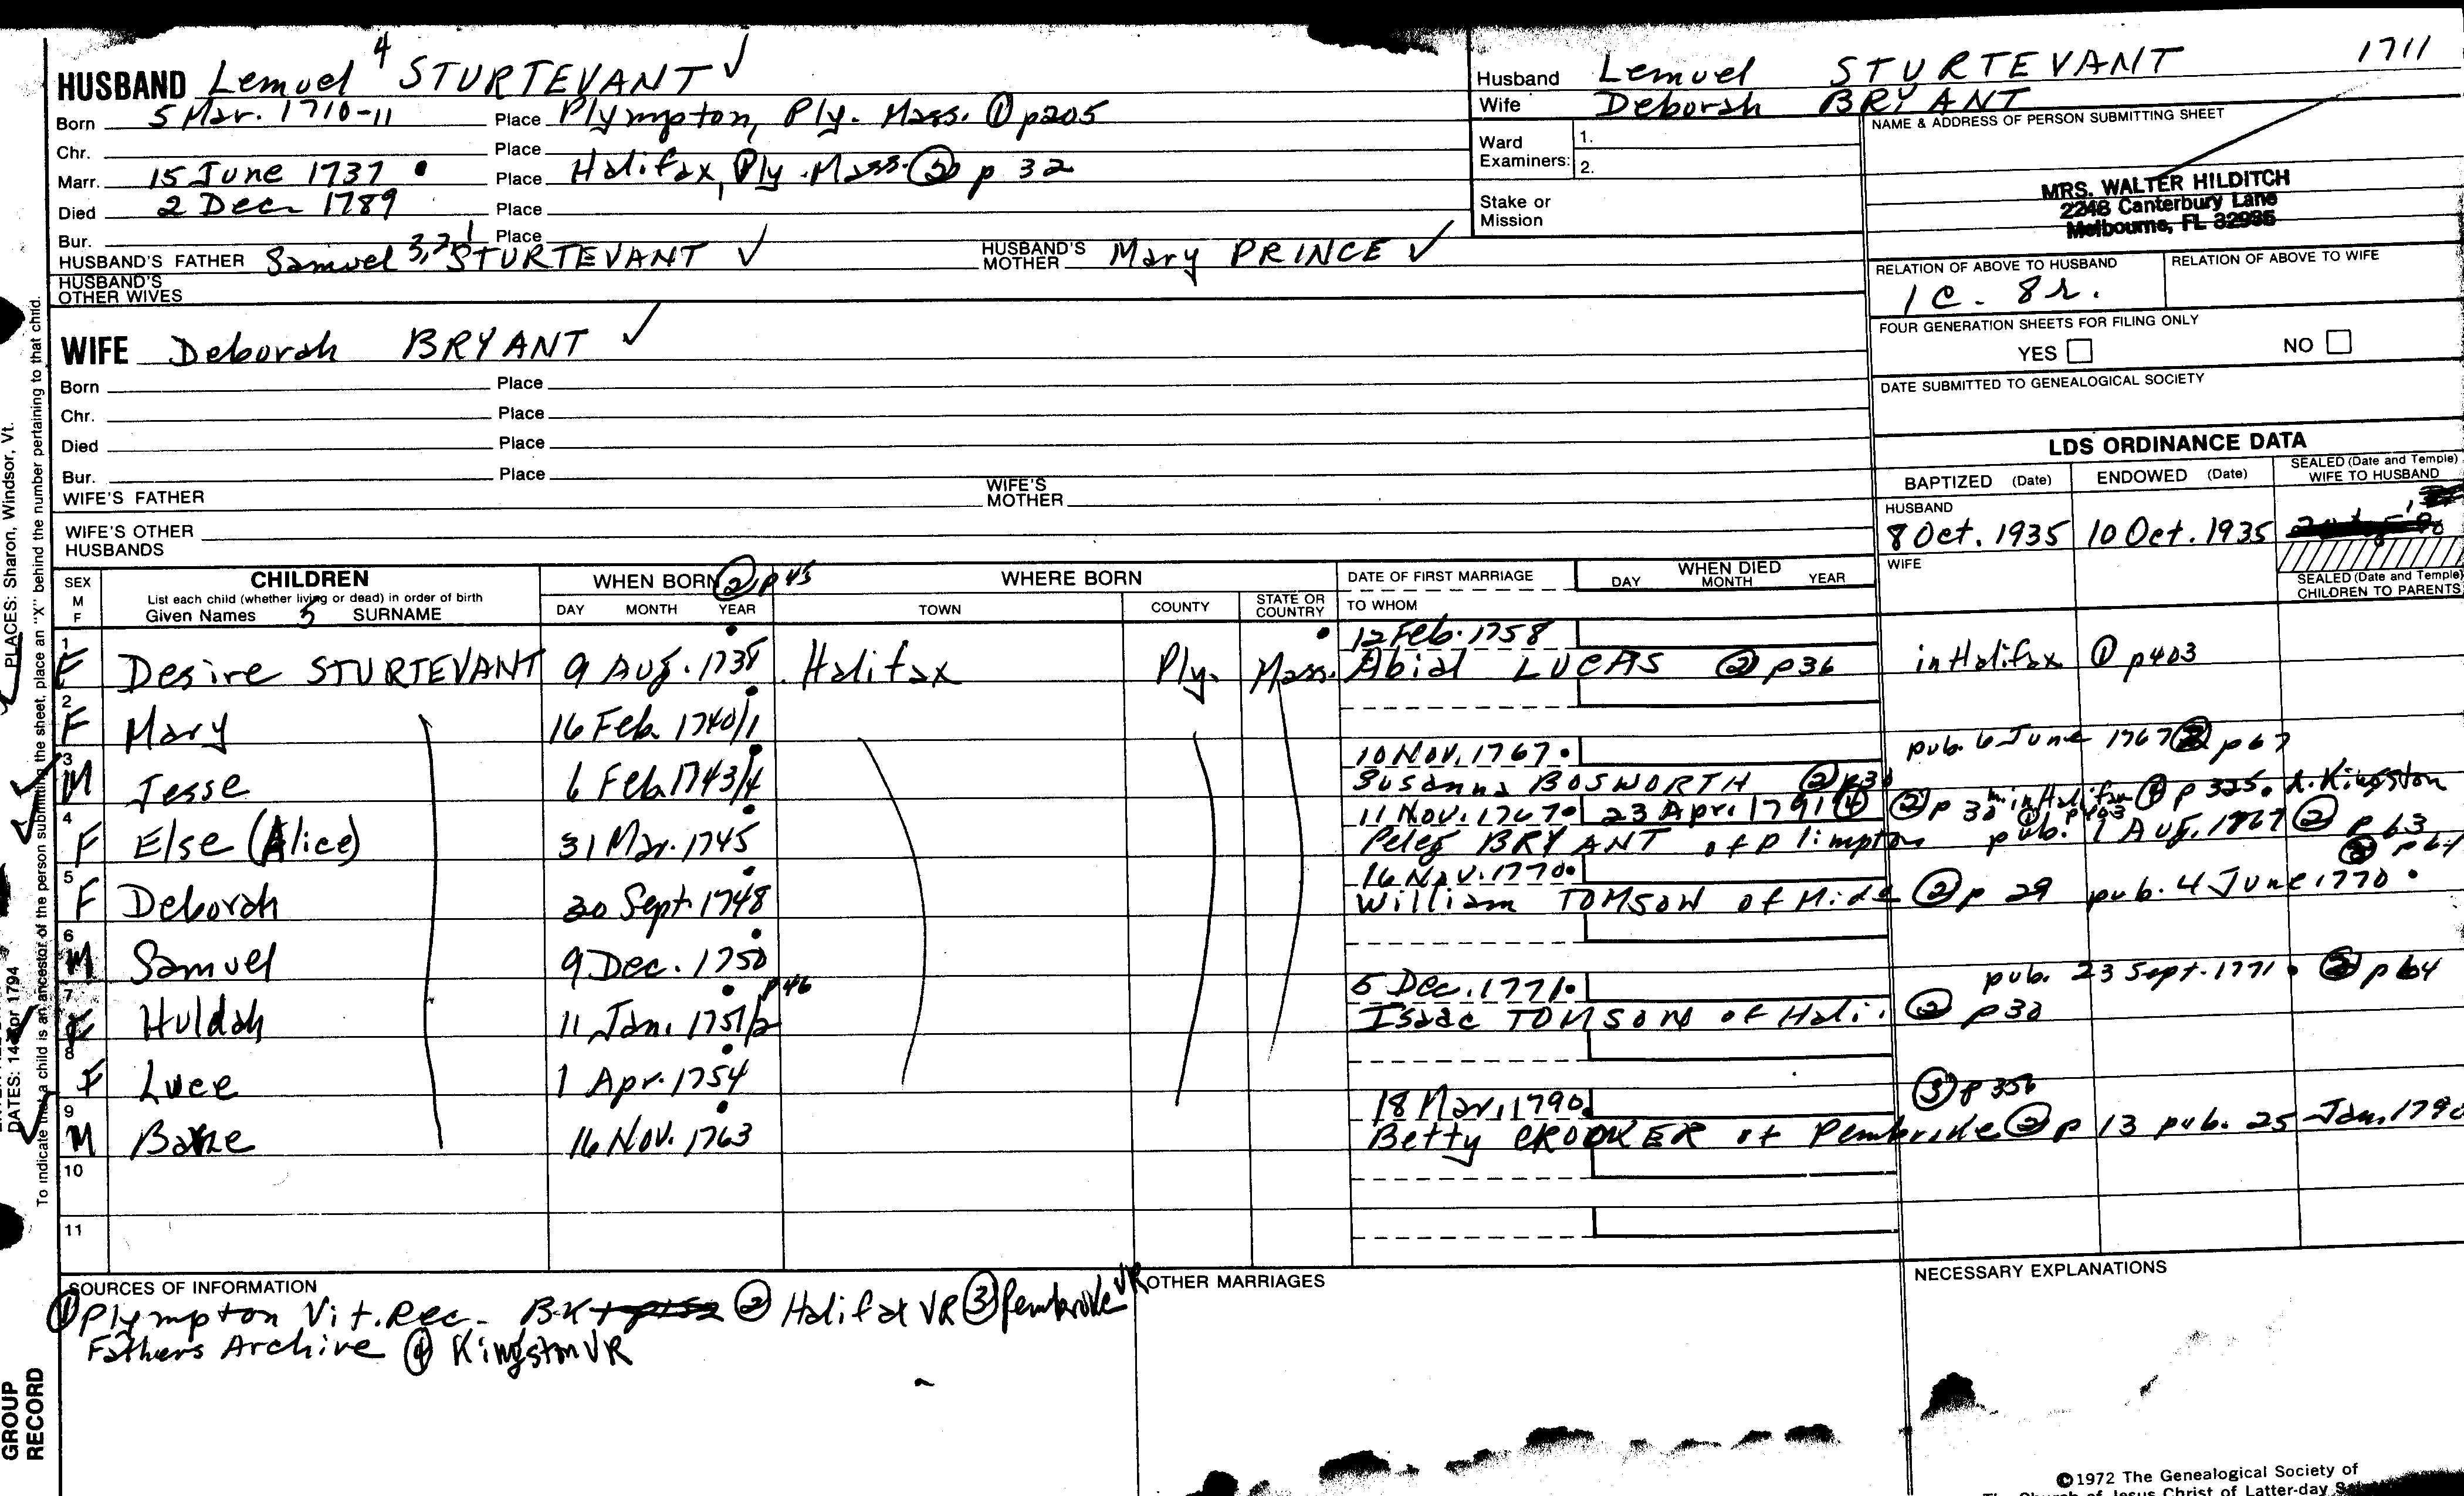 HUSBAND Lemuel 4 STURTEVANT ✓
Born 5 Mar. 1710-11 Place Plympton, Ply. Mass. ① p205
Chr. Place
Marr. 15 June 1737 • Place Halifax, Ply. Mass. ② p 32
Died 2 Dec 1789 Place
Bur. Place
HUSBAND'S FATHER Samuel 3,2,1 STURTEVANT ✓ HUSBAND'S MOTHER Mary PRINCE ✓
HUSBAND'S OTHER WIVES
WIFE Deborah BRYANT ✓
Born Place
Chr. Place
Died Place
Bur. Place
WIFE'S FATHER WIFE'S MOTHER
WIFE'S OTHER HUSBANDS
Husband Lemuel STURTEVANT 1711
Wife Deborah BRYANT
Ward Examiners: 1.
2.
Stake or Mission
NAME & ADDRESS OF PERSON SUBMITTING SHEET
MRS. WALTER HILDITCH
2248 Canterbury Lane
Melbourne, FL 32935
RELATION OF ABOVE TO HUSBAND RELATION OF ABOVE TO WIFE
1 C. 8 r.
FOUR GENERATION SHEETS FOR FILING ONLY
YES NO
DATE SUBMITTED TO GENEALOGICAL SOCIETY
LDS ORDINANCE DATA
BAPTIZED (Date) ENDOWED (Date) SEALED (Date and Temple) WIFE TO HUSBAND
HUSBAND
8 Oct. 1935 10 Oct. 1935
WIFE
SEALED (Date and Temple) CHILDREN TO PARENTS
SEX M F CHILDREN WHEN BORN ② p 45 WHERE BORN DATE OF FIRST MARRIAGE WHEN DIED DAY MONTH YEAR
List each child (whether living or dead) in order of birth
Given Names 5 SURNAME DAY MONTH YEAR TOWN COUNTY STATE OR COUNTRY TO WHOM
12 Feb. 1758
1 F Desire STURTEVANT 9 Aug. 1738 Halifax Ply. Mass. Abial LUCAS ② p36 in Halifax ① p403
2 F Mary 16 Feb. 1740/1
10 Nov. 1767 • pub. 6 June 1767 ② p 67
3 M Jesse 6 Feb 1743/4 Susanna BOSWORTH ② p30
11 Nov. 1767 • 23 Apr. 1791 ④ ② p 30 in Halifax p 325. Kingston
4 F Else (Alice) 31 Mar. 1745 Peleg BRYANT of Plimpton pub. 1 Aug. 1767 ② p 63
16 Nov. 1770 •
5 F Deborah 30 Sept. 1748 William TOMSON of Midd ② p 29 pub. 4 June 1770 •
6 M Samuel 9 Dec. 1750
p 46 5 Dec. 1771 • pub. 23 Sept. 1771 • ② p 64
7 F Huldah 11 Jan. 1751/2 Isaac TOMSON of Hali. ② p30
8 F Luce 1 Apr. 1754
18 Mar. 1790 ③ p 356
9 M 16 Nov. 1763 Betty CROOKER of Pembroke ② p 13 pub. 25 Jan. 1790
10
11
SOURCES OF INFORMATION OTHER MARRIAGES NECESSARY EXPLANATIONS
① Plympton Vit. Rec. BK ② Halifax VR ③ Pembroke VR
Fathers Archive ④ Kingston VR
©1972 The Genealogical Society of
PLACES: Sharon, Windsor, Vt.
DATES: 14 Apr 1794
To indicate that a child is an ancestor of the person submitting the sheet, place an "X" behind the number pertaining to that child.
GROUP
RECORD